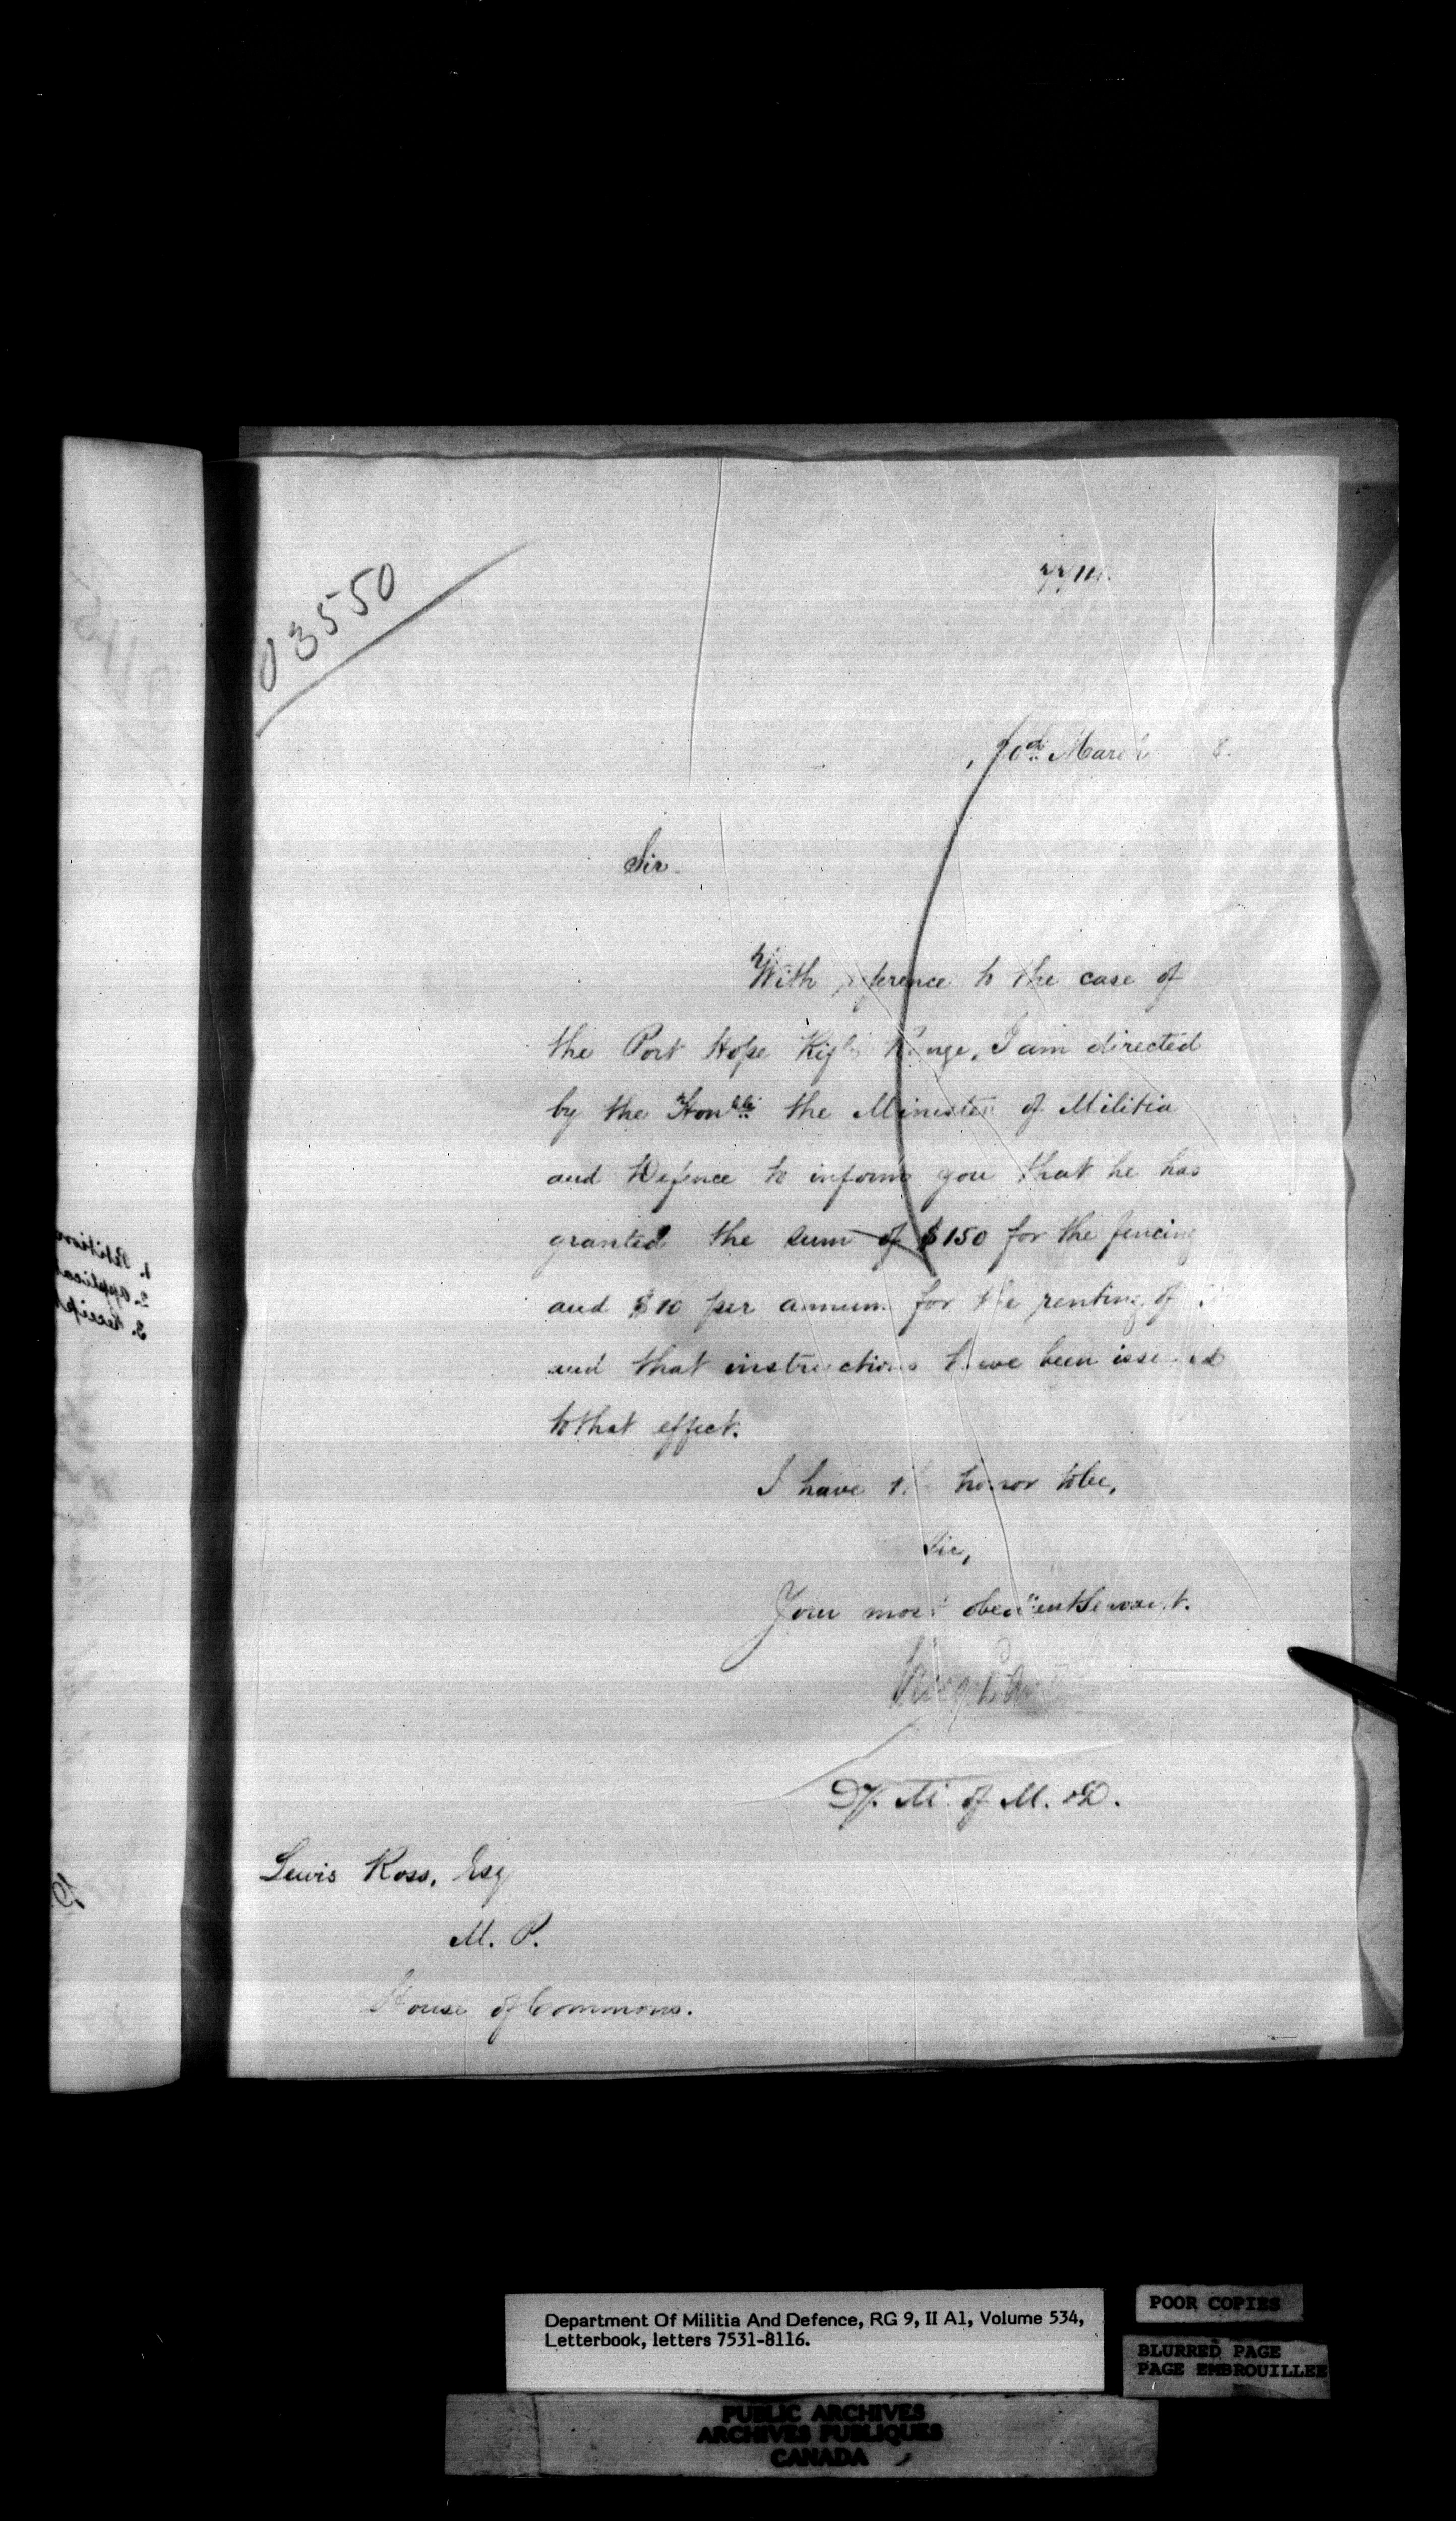 03550
7714.
March 8.
Sir.
With reference to the case of
the Port Hope Rifle Range, I am directed
by the Honble the Minister of Militia
and Defence to inform you that he has
granted the sum of $150 for the fencing
and $10 per annum for the renting of
and that instructions have been issued
to that effect.
I have the honor to be,
Sir,
Your most obedient Servant.
Dy. M. of M. & D.
Lewis Ross, Esq
M. P.
House of Commons.
1. Petition
2. Applicat
3. Receipt
Department Of Militia And Defence, RG 9, II A1, Volume 534,
Letterbook, letters 7531-8116.
POOR COPIES
BLURRED PAGE
PAGE EMBROUILLEE
PUBLIC ARCHIVES
ARCHIVES PUBLIQUES
CANADA